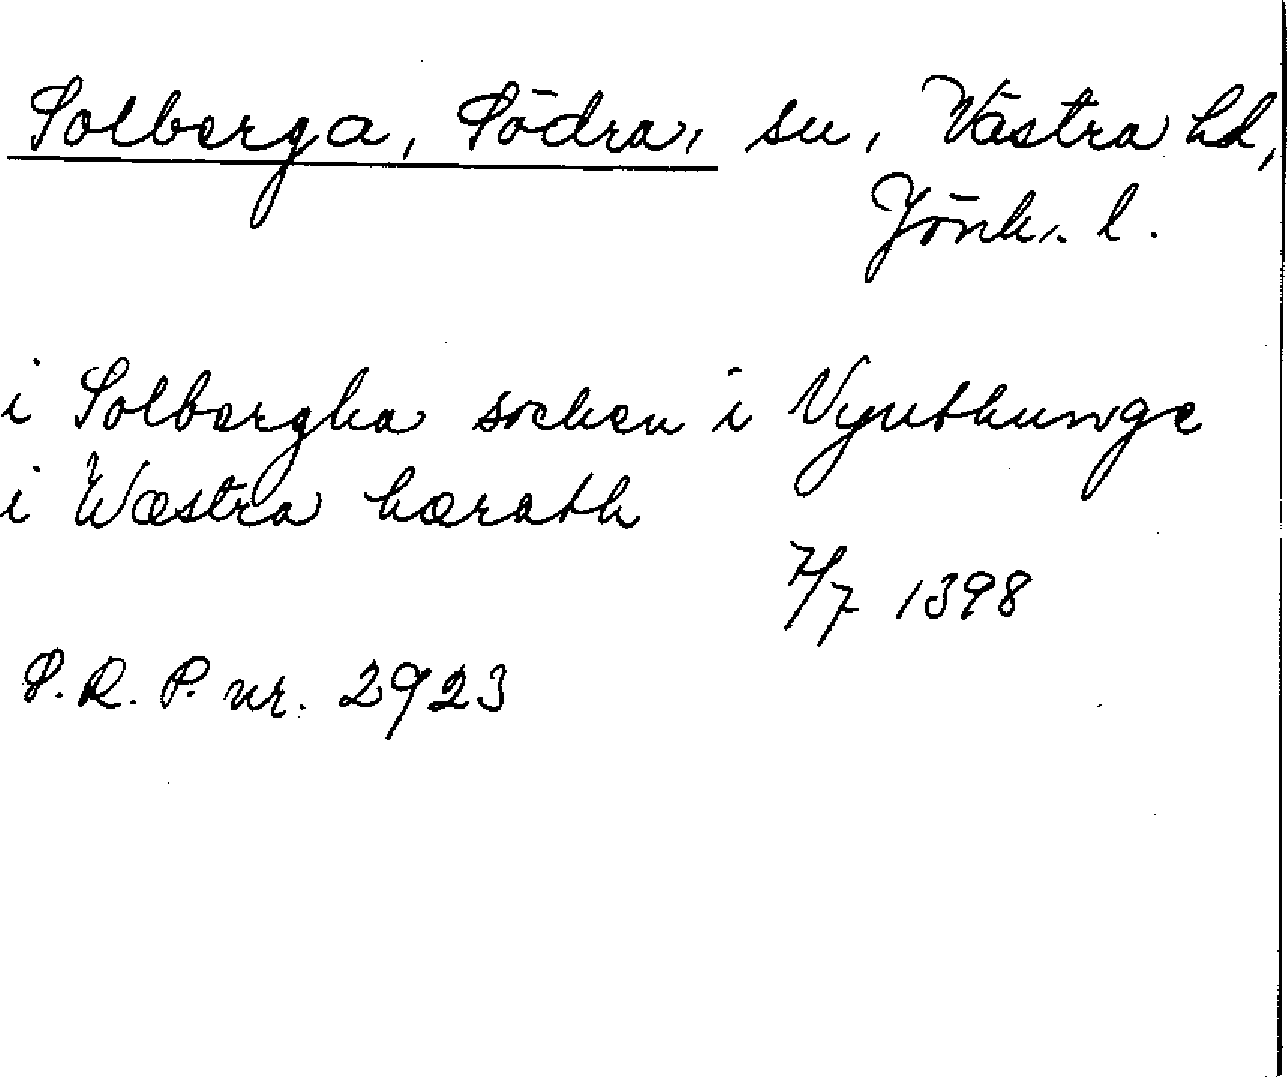 Solberga, Södra, sn, Västra hd,
Jönk. l.
i Solbergha sochen i Nyuthunge
i Wæstra hærath
7/7 1398
S. R. P. nr. 2923